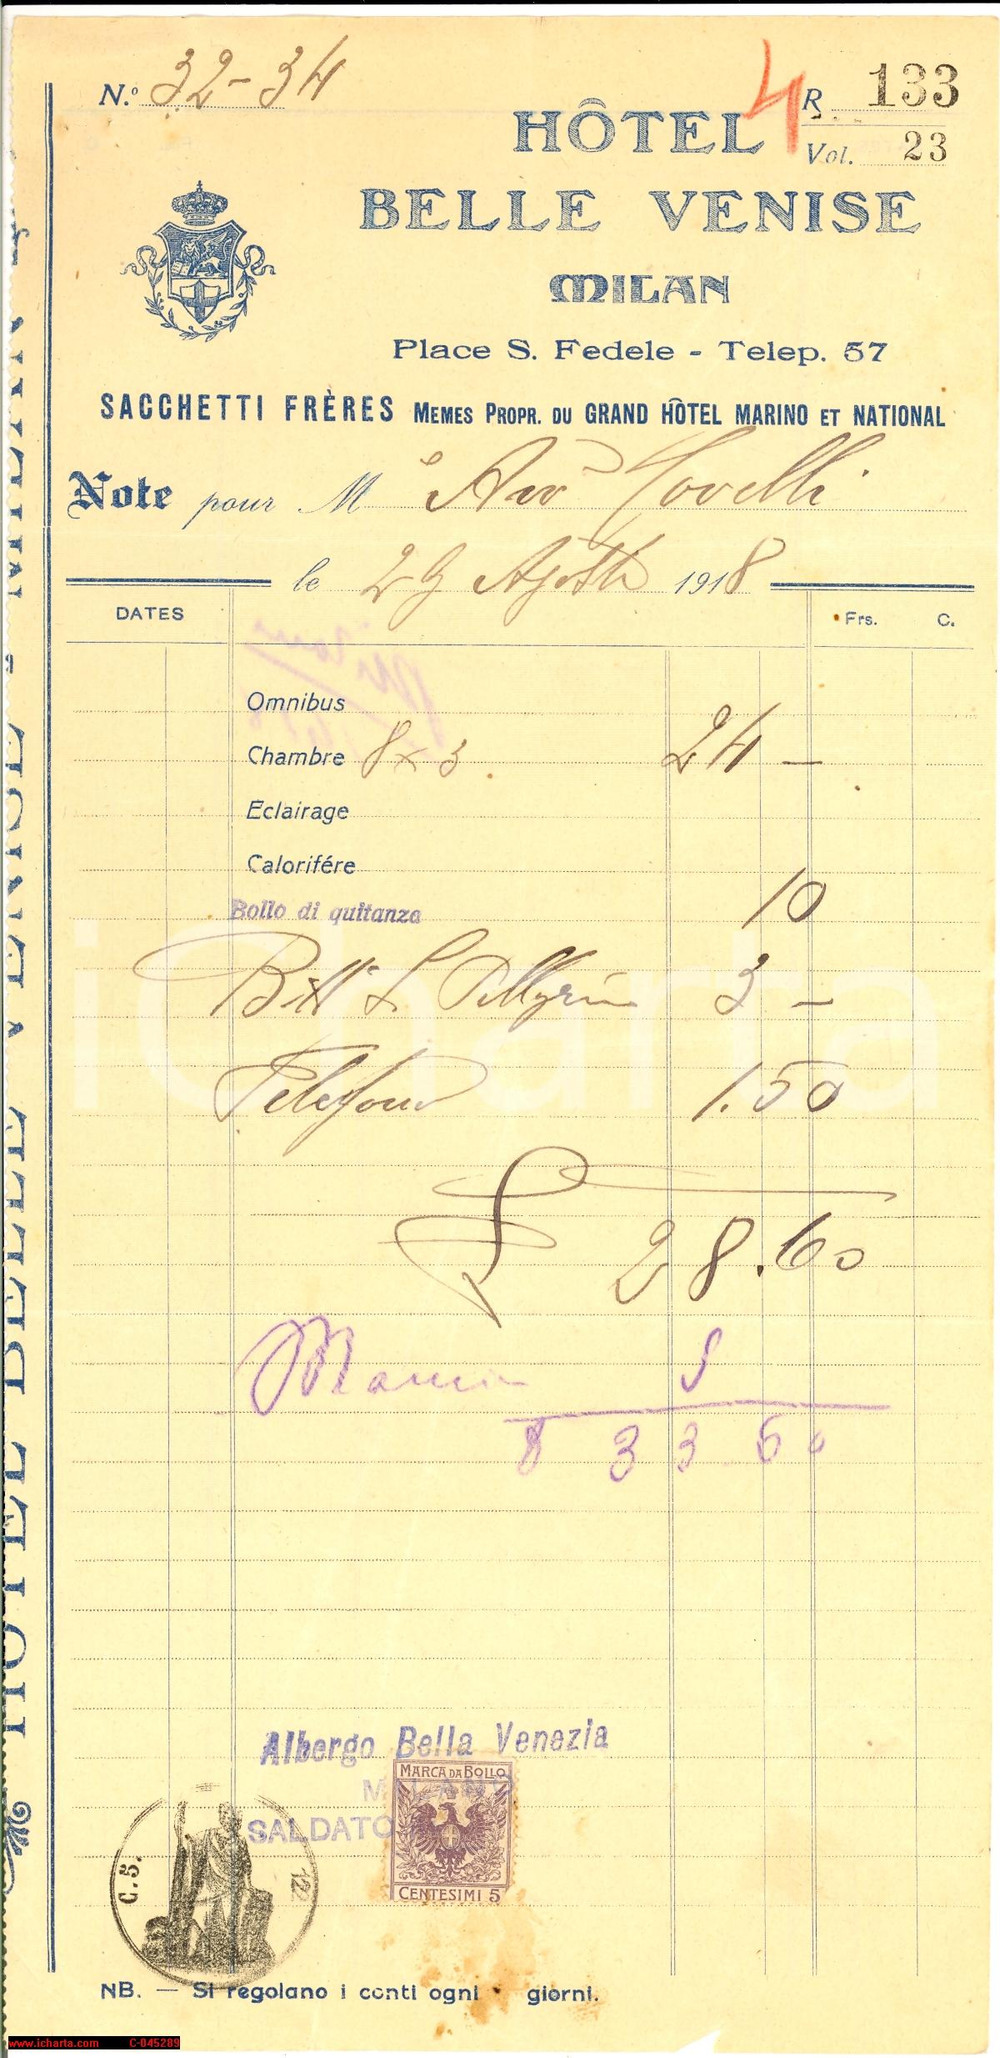 N.º 32-34
4
R 133
Vol. 23
HÔTEL
BELLE VENISE
MILAN
Place S. Fedele - Telep. 57
SACCHETTI FRÈRES MEMES PROPR. DU GRAND HÔTEL MARINO ET NATIONAL
Note pour M Avo Covelli
le 29 Agosto 1918
DATES Frs. C.
Omnibus
Chambre 8 x 3 24 —
Eclairage
Calorifére
Bollo di quitanza 10
Bott S. Pellegrino 3 —
Telefono 1.50
£ 28.60
Mancia 5
£ 33 60
Albergo Bella Venezia
MILANO
SALDATO
MARCA DA BOLLO
CENTESIMI 5
C. 5.
NB. — Si regolano i conti ogni giorni.
HOTEL BELLE VENISE - MILAN
iCharta
www.icharta.com C-045289